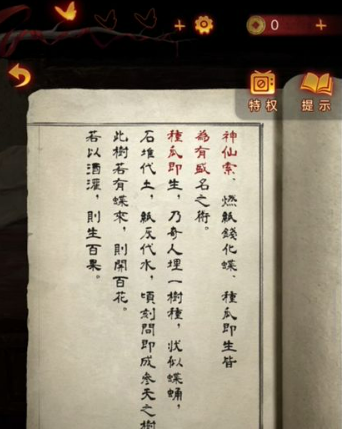 0
特权
提示
神仙索、燃紙錢化蝶、種瓜即生皆
為有盛名之術。
種瓜即生，乃奇人埋一樹種，狀似蝶蛹，
石堆代土，紙灰代水，頃刻間即成參天之樹
此樹若有蝶來，則開百花。
若以酒灌，則生百果。